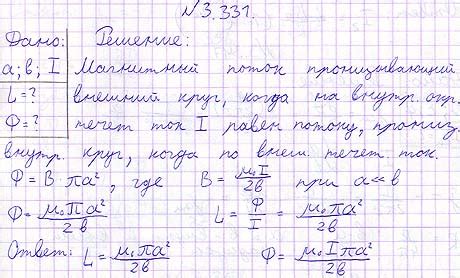 №3.331.
Дано: Решение:
a; в; I Магнитный поток пронизывающий
L=? внешний круг, когда на внутр. окр.
Ф=? течет ток I равен потоку, прониз.
внутр. круг, когда по внеш. течет ток.
Ф = B πa², где B = μ₀I/2в при a≪в
Ф = μ₀Iπa²/2в L = Ф/I = μ₀πa²/2в
Ответ: L = μ₀πa²/2в Ф = μ₀Iπa²/2в